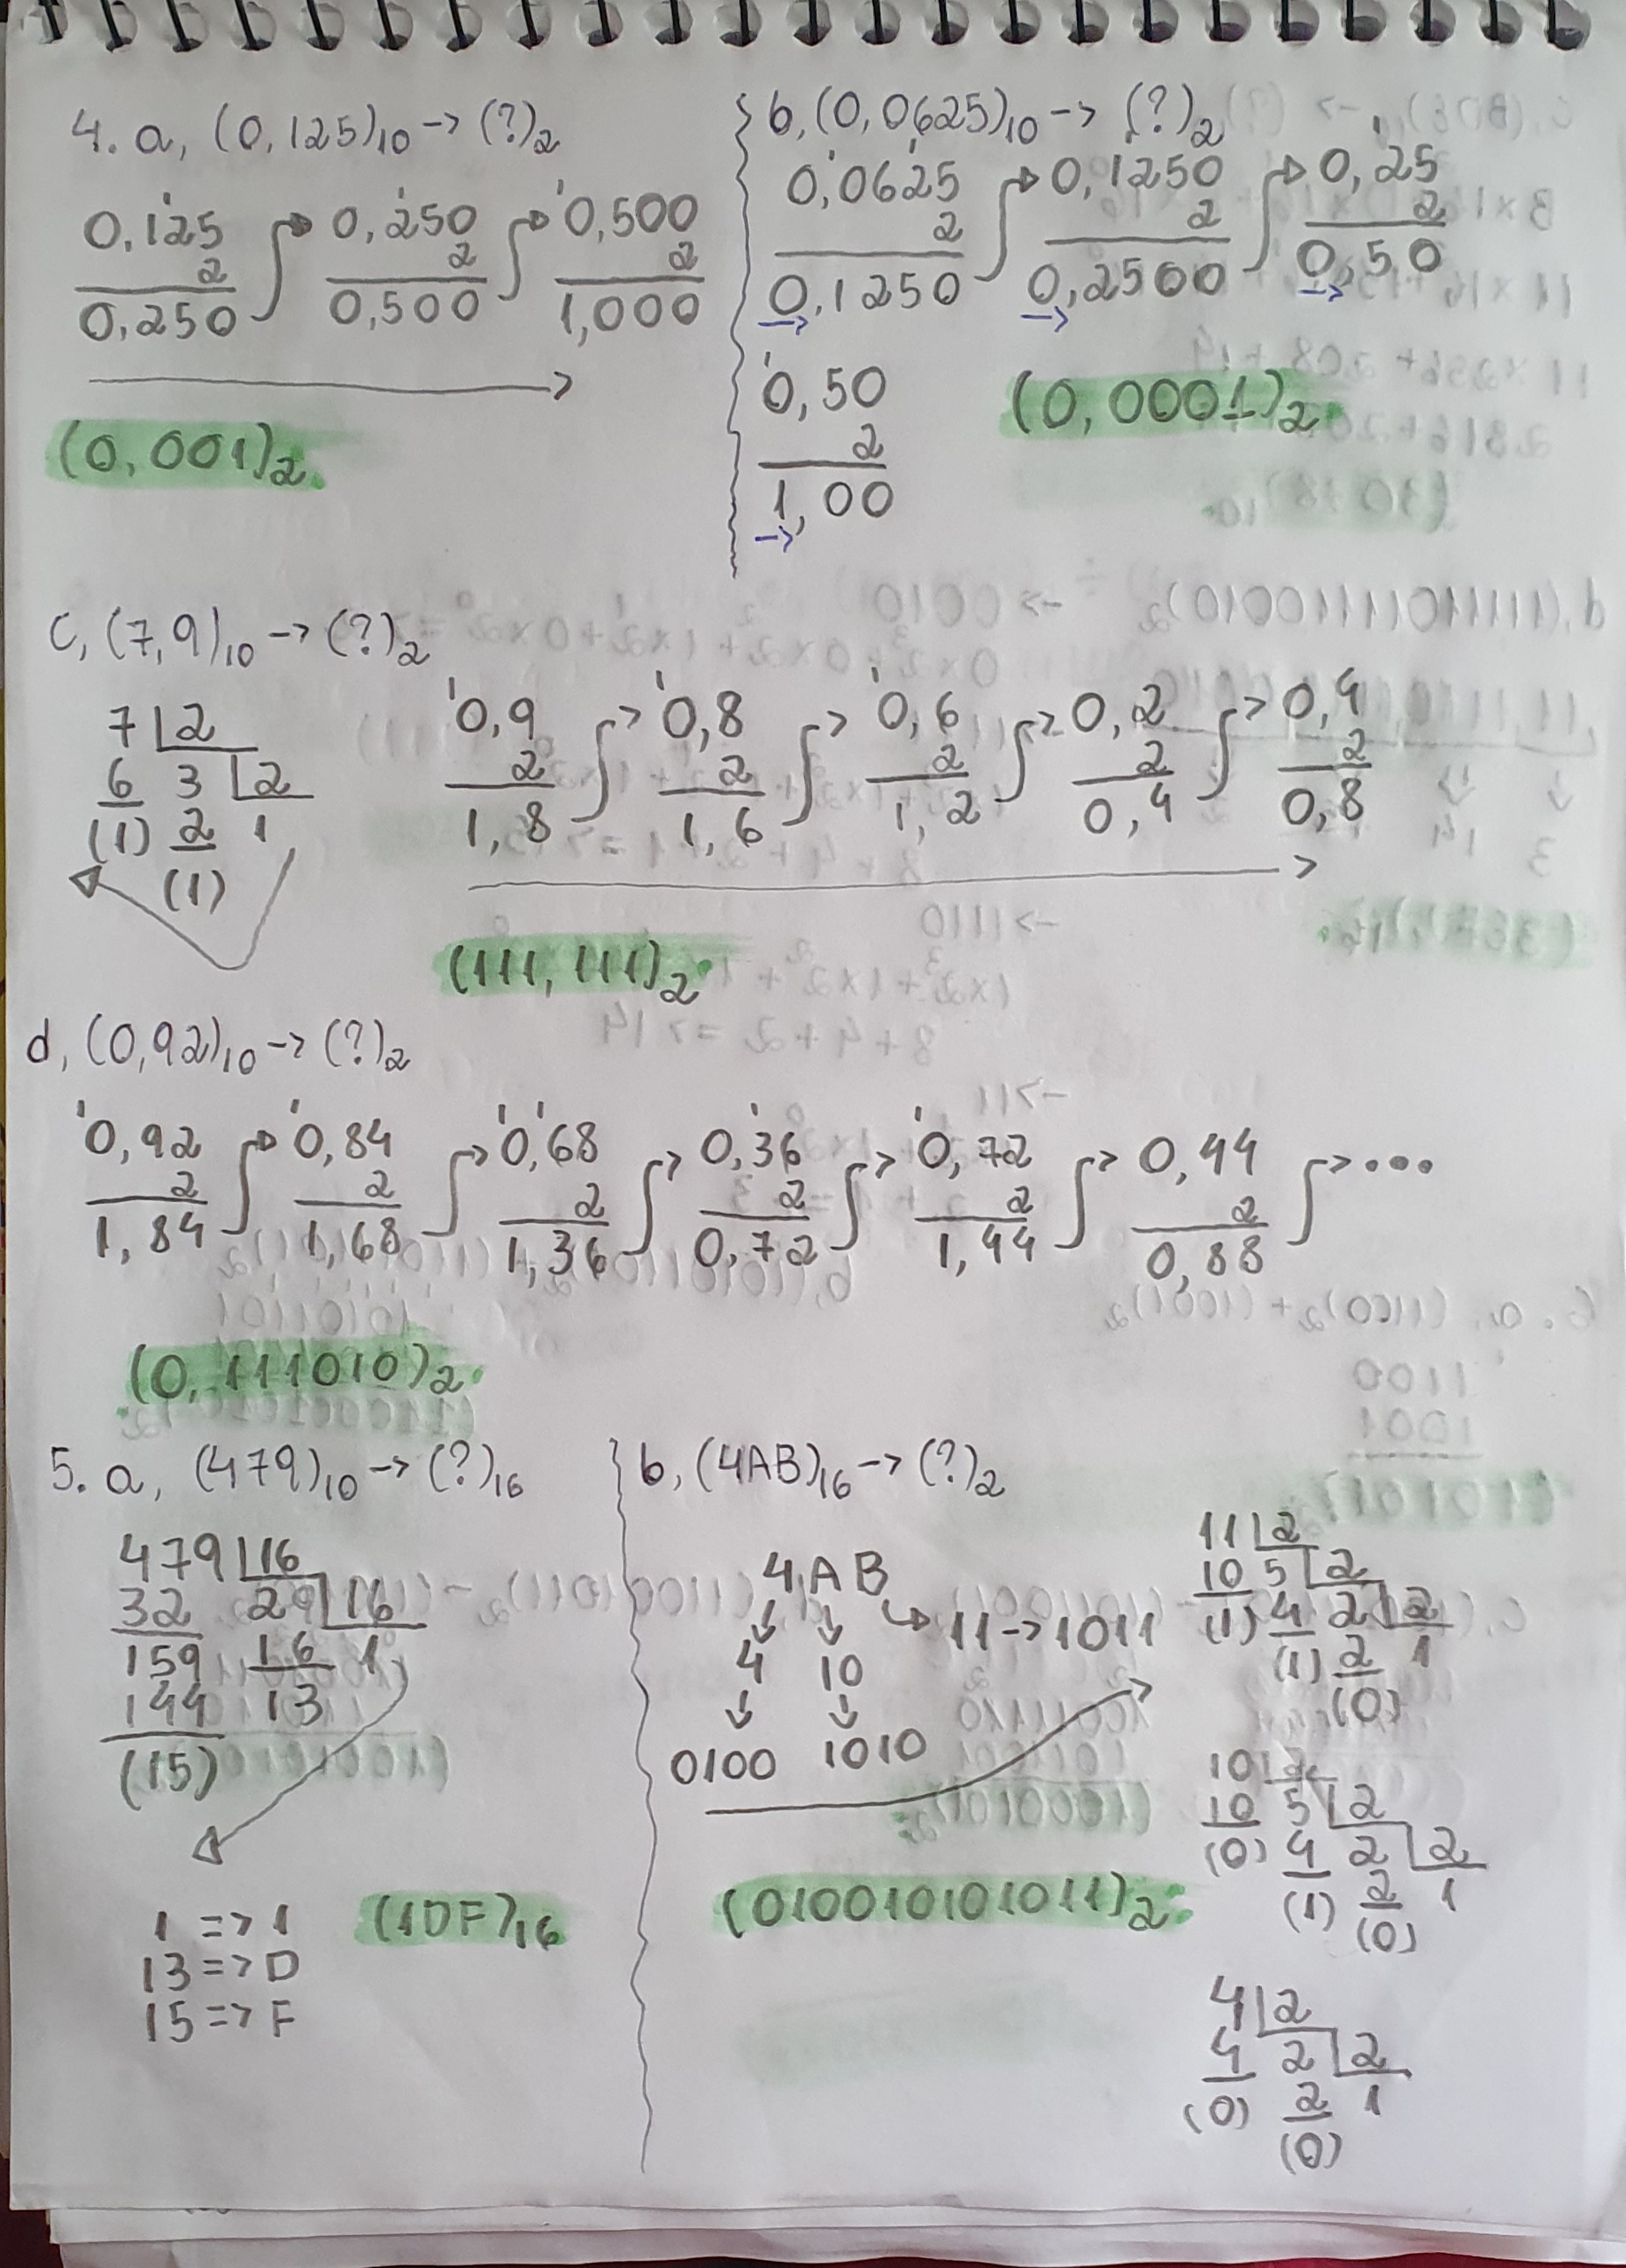 4. a, (0,125)10 -> (?)2
0,125
2
0,250
0,250
2
0,500
0,500
2
1,000
(0,001)2
b, (0,0625)10 -> (?)2
0,0625
2
0,1250
0,1250
2
0,2500
0,25
2
0,50
0,50
2
1,00
(0,0001)2
c, (7,9)10 -> (?)2
7 2
6 3 2
(1) 2 1
(1)
0,9
2
1,8
0,8
2
1,6
0,6
2
1,2
0,2
2
0,4
0,4
2
0,8
(111,111)2
d, (0,92)10 -> (?)2
0,92
2
1,84
0,84
2
1,68
0,68
2
1,36
0,36
2
0,72
0,72
2
1,44
0,44
2
0,88
...
(0,111010)2
5. a, (479)10 -> (?)16
479 16
32 29 16
159 16 1
144 13
(15)
1 => 1
13 => D
15 => F
(1DF)16
b, (4AB)16 -> (?)2
4AB
4 10 11 -> 1011
0100 1010
(010010101011)2
11 2
10 5 2
(1) 4 2 2
(1) 2 1
(0)
10 2
10 5 2
(0) 4 2 2
(1) 2 1
(0)
4 2
4 2 2
(0) 2 1
(0)